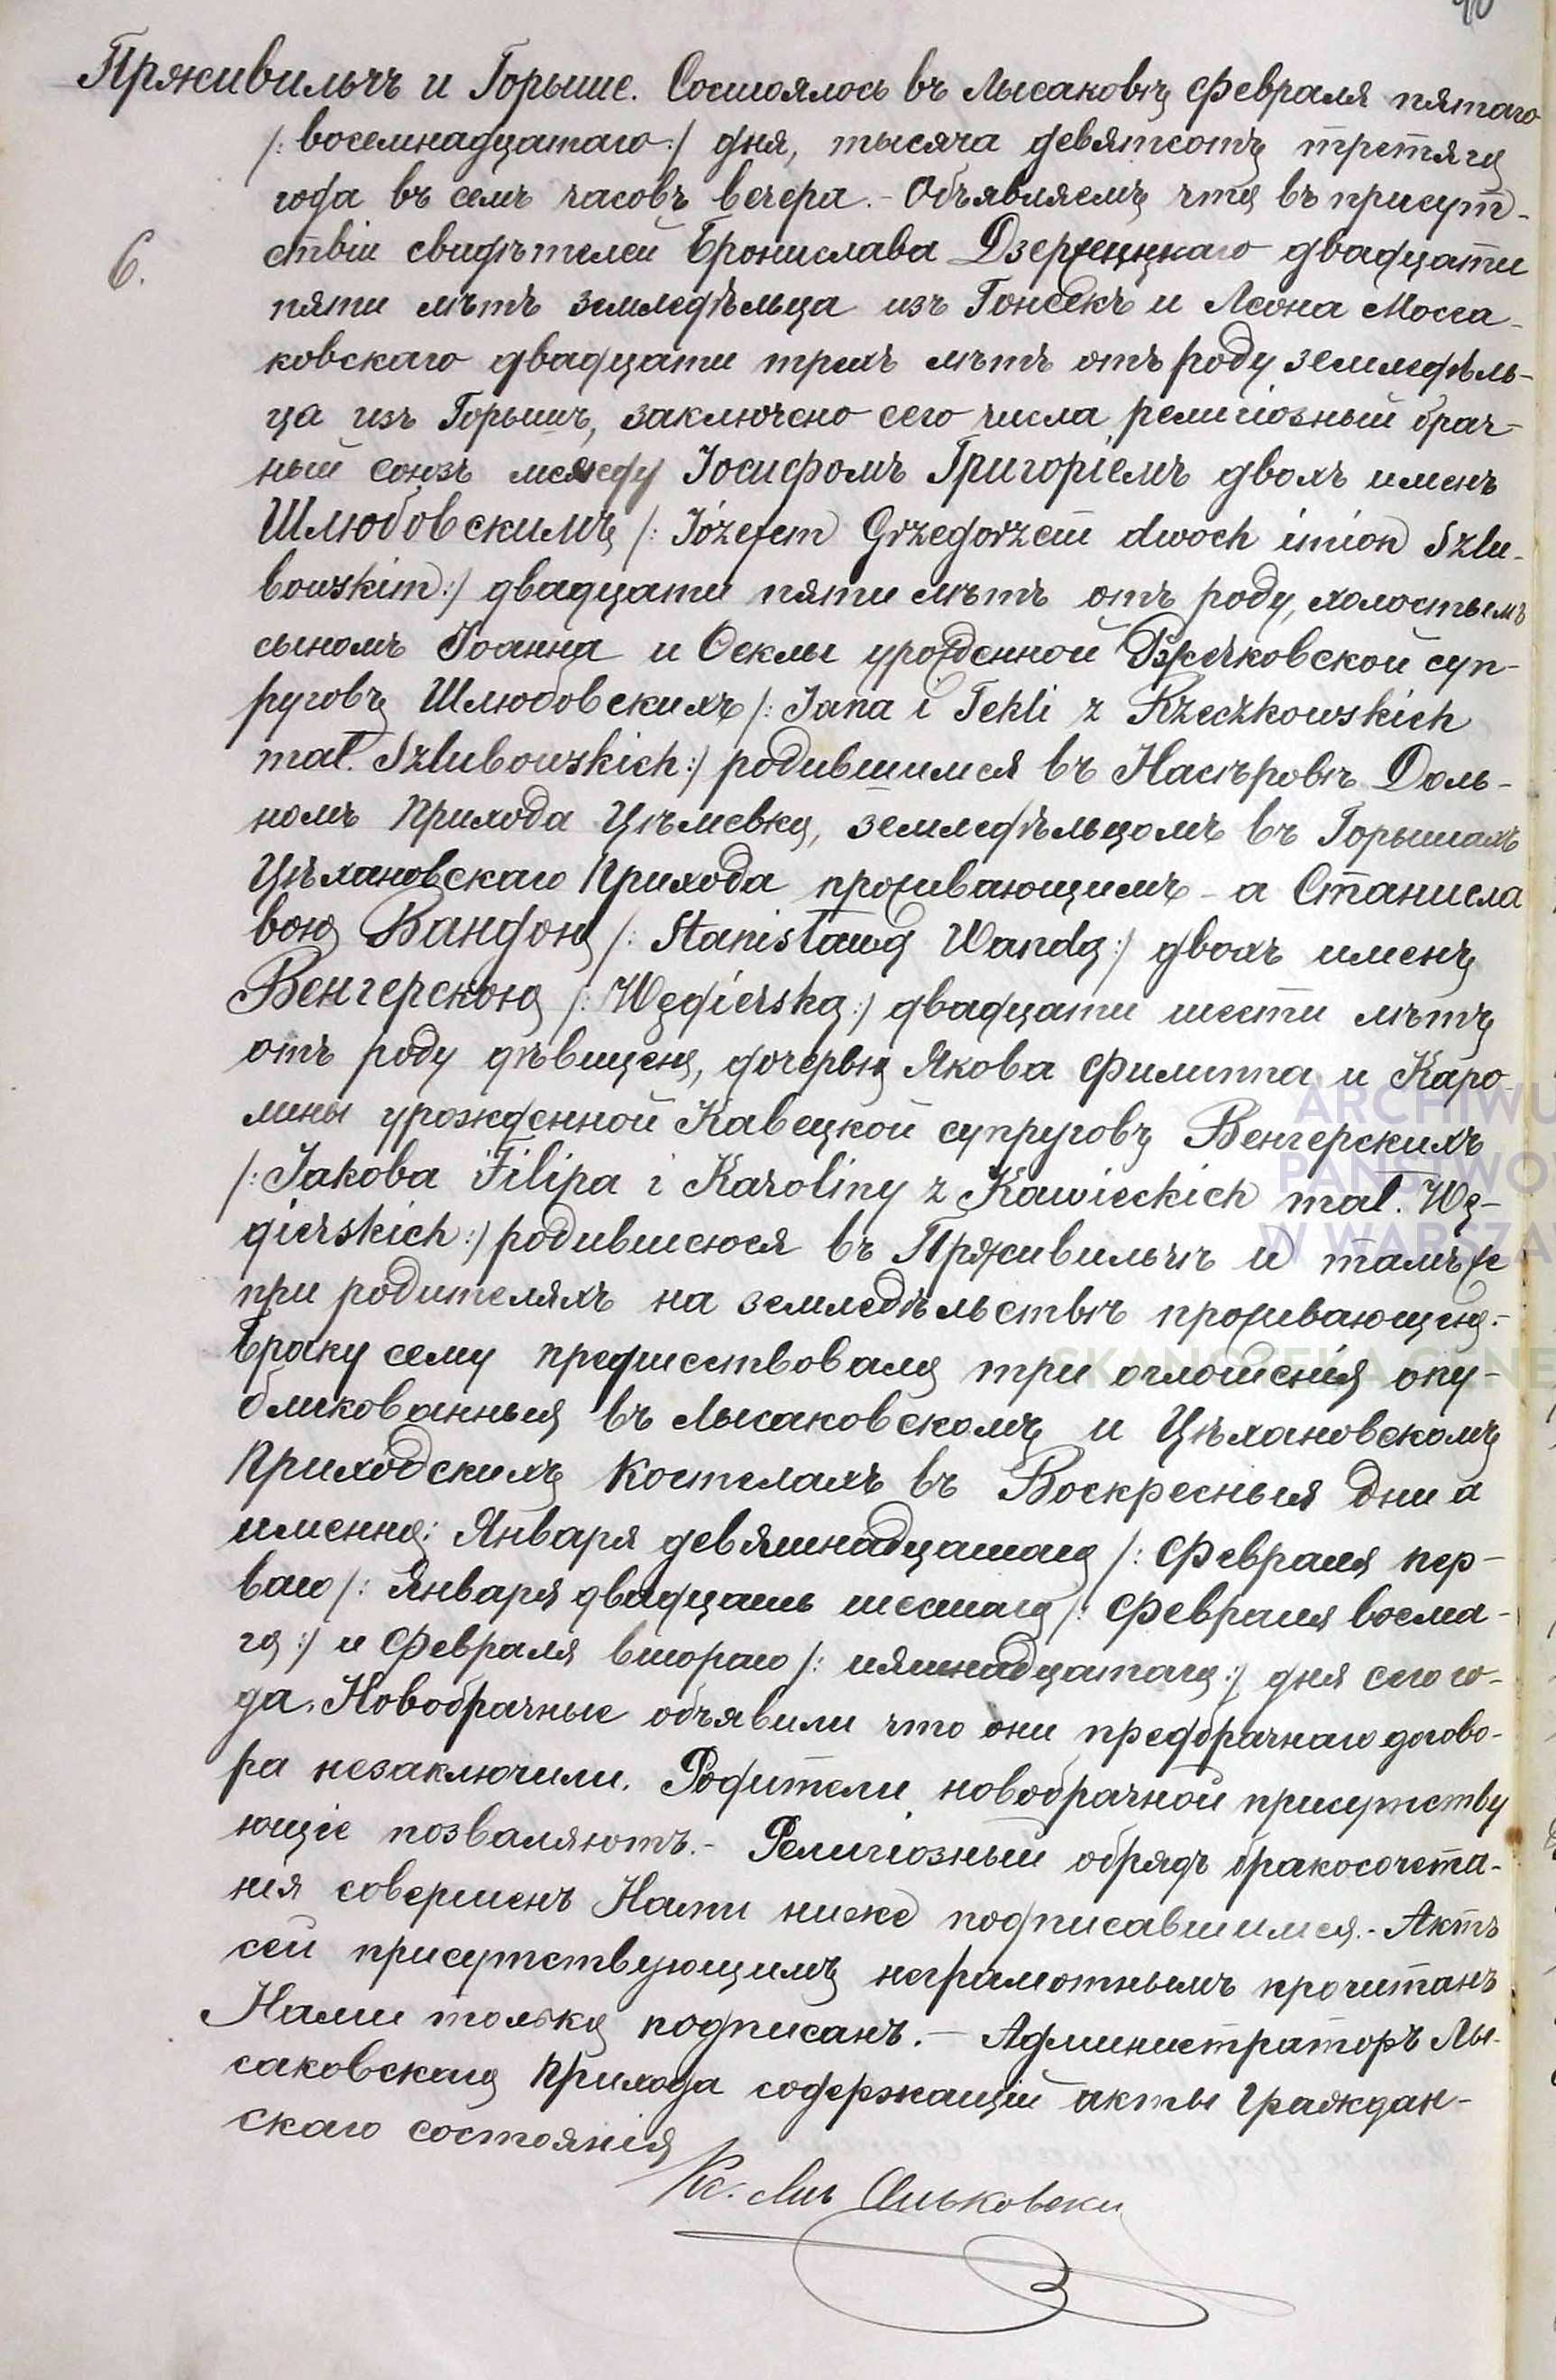 Прживильчъ и Горыше. Состоялось въ Лысаковѣ Февраля пятаго
/: восемнадцатаго :/ дня, тысяча девятсотъ третяго
года въ семъ часовъ вечера. - Объявляемъ что въ присут-
6.
ствіи свидѣтелей Бронислава Дзержецкаго двадцати
пяти лѣтъ земледѣльца изъ Гонсекъ и ЛеонаРосса-
ковскаго двадцати трехъ лѣтъ отъ роду земледѣль-
ца изъ Горышъ, заключено сего числа религіозный брач-
ный союзъ между Іосифомъ Григоріемъ двохъ именъ
Шлюбовскимъ /: Józefem Grzegorzem dwoch imion Szlu-
bowskim :/ двадцати пяти лѣтъ отъ роду, холостымъ
сыномъ Іоанна и Ѳеклы урожденной Ржечковской суп-
руговъ Шлюбовскихъ /: Jana i Tekli z Rzeczkowskich
mał. Szlubowskich :/ родившимся въ Насѣровѣ Доль-
номъ Прихода Цѣмевко, земледѣльцомъ въ Горышахъ
Цѣхановскаго Прихода проживающимъ - а Станисла
вою Вандою /: Stanisławą Wandą :/ двохъ именъ
Венгерскою /: Węgierską :/ двадцати шести лѣтъ
отъ роду дѣвицею, дочерью Якова Филиппа и Каро-
лины урожденной Кавецкой супруговъ Венгерскихъ
/: Jakoba Filipa i Karoliny z Kawieckich mał. Wę-
gierskich :/ родившеюся въ Прживильчѣ и тамъже
при родителяхъ на земледѣльствѣ проживающею. -
Браку сему предшествовало три оглошенія опу-
бликованныя въ Лысаковскомъ и Цѣхановскомъ
Приходскихъ Костелахъ въ Воскресныя дни а
именно: Января девятнадцатаго /: Февраля пер-
ваго /: Января двадцать шестаго /: Февраля восма-
го :/ и Февраля втораго /: пятнадцатаго :/ дня сего го-
да. Новобрачные объявили что они предбрачнаго догово-
ра незаключили. Родители новобрачной присутству
ющіе позваляютъ. - Религіозный обрядъ бракосочета-
нія совершенъ Нами ниже подписавшимся. - Актъ
сей присутствующимъ неграмотнымъ прочитанъ
Нами только подписанъ. - Администраторъ Лы-
саковскаго Прихода содержащій акты Граждан-
скаго состоянія
ARCHIWU
PAŃSTWOW
W WARSZAW
SKANOTEKA GENE